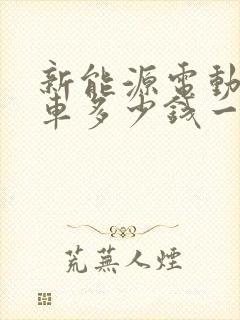 新能源電動
車多少錢一
荒蕪人煙